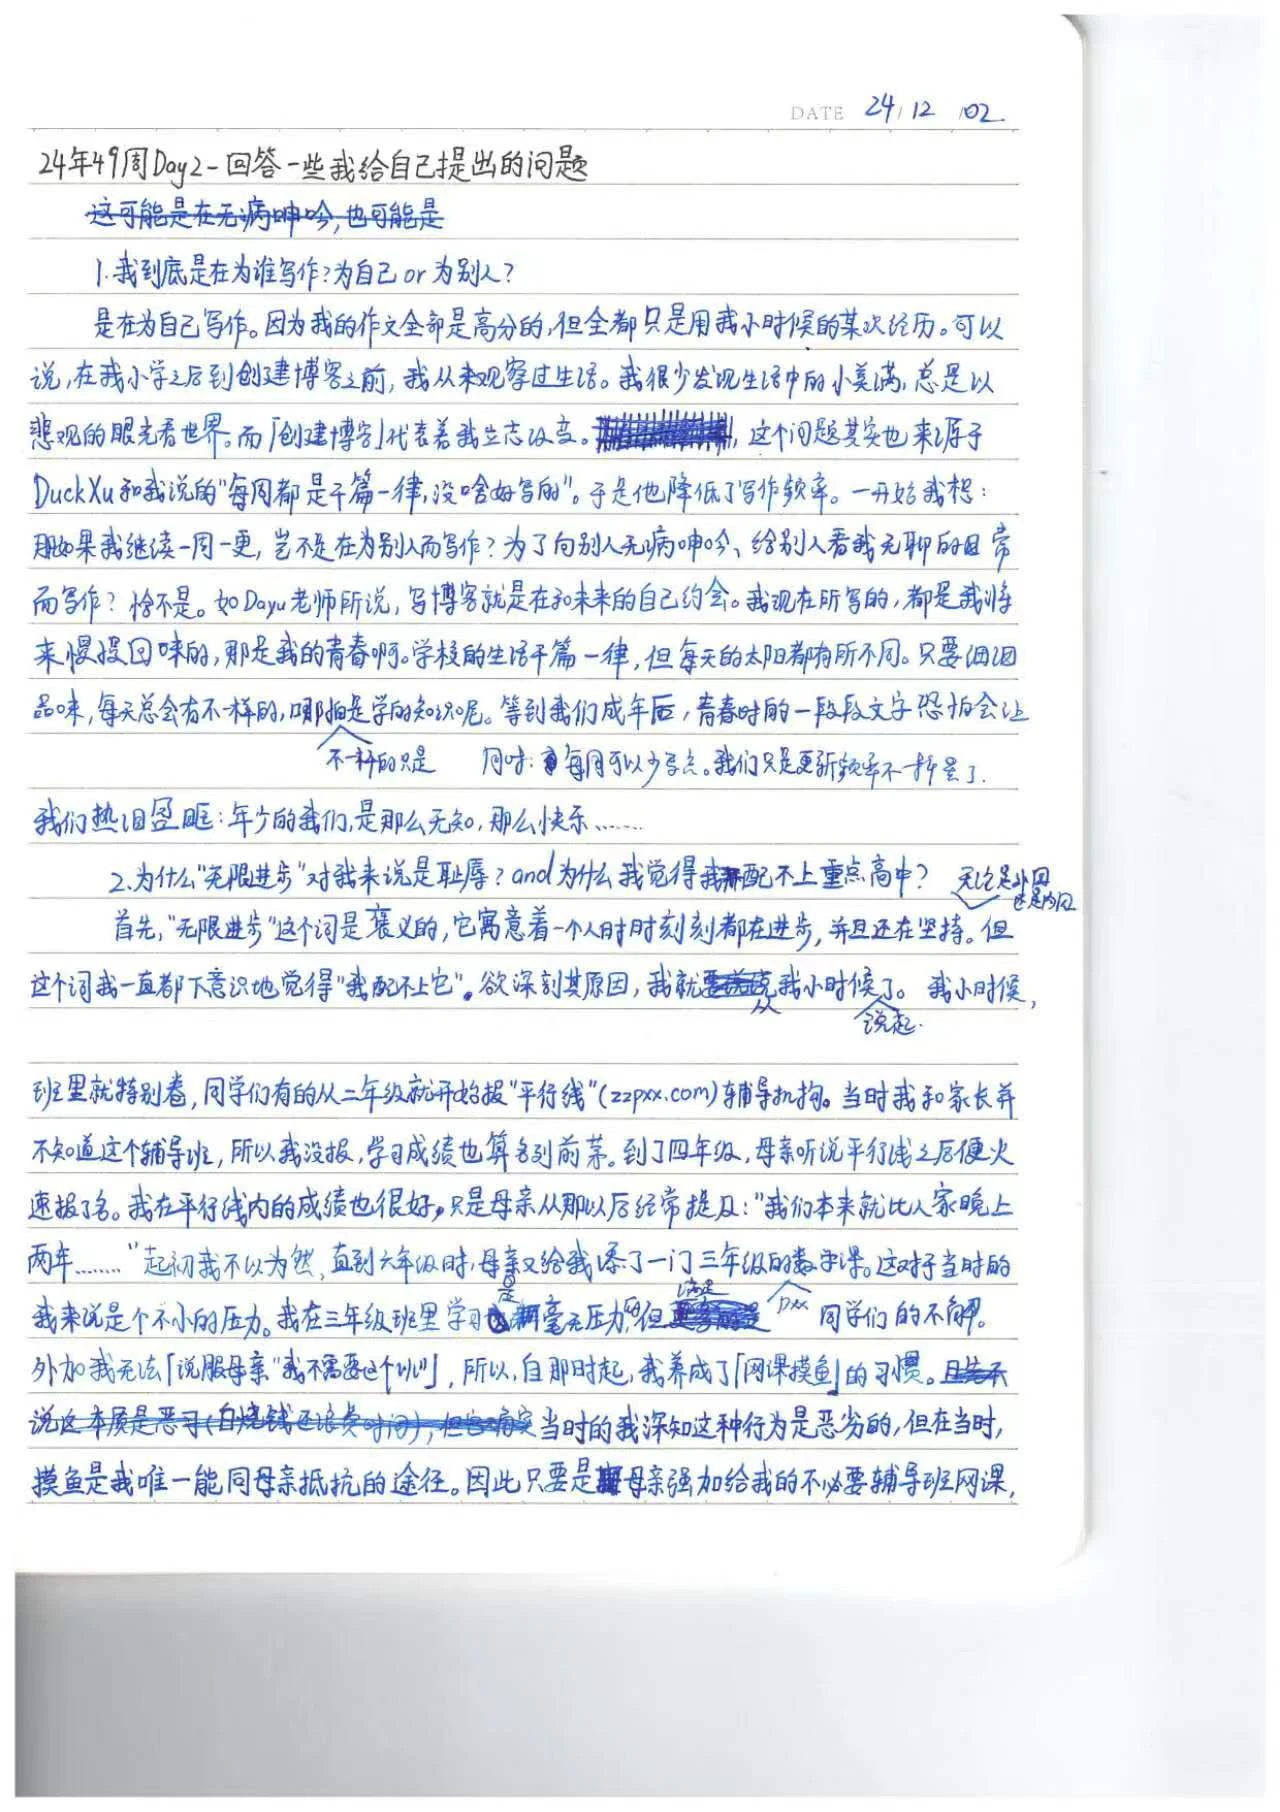 DATE 24/12/02
24年49周Day2-回答一些我给自己提出的问题
这可能是在无病呻吟,也可能是
1.我到底是在为谁写作?为自己or为别人?
是在为自己写作。因为我的作文全部是高分的,但全都只是用我小时候的某次经历。可以
说,在我小学之后到创建博客之前,我从未观察过生活。我很少发现生活中的小美满,总是以
悲观的眼光看世界。而「创建博客」代表着我立志改变。 这个问题其实也来源于
DuckXu和我说的“每周都是千篇一律,没啥好写的”。于是他降低了写作频率。一开始我想:
那如果我继续一周一更,岂不是在为别人而写作?为了向别人无病呻吟、给别人看我无聊的日常
而写作?恰不是。如Dayu老师所说,写博客就是在和未来的自己约会。我现在所写的,都是我将
来慢慢回味的,那是我的青春啊。学校的生活千篇一律,但每天的太阳都有所不同。只要细细
品味,每天总会有不一样的,哪怕是学的知识呢。等到我们成年后,青春时的一段段文字恐怕会让
不一样的只是 同时:每周可以少写点。我们只是更新频率不一样罢了.
我们热泪盈眶:年少的我们,是那么无知,那么快乐……
2.为什么“无限进步”对我来说是耻辱?and为什么我觉得我配不上重点高中? 无论是外因
还是内因
首先,“无限进步”这个词是褒义的,它寓意着一个人时时刻刻都在进步,并且还在坚持。但
这个词我一直都下意识地觉得“我配不上它”。欲深刻其原因,我就 我小时候了。我小时候,
从 说起.
班里就特别卷,同学们有的从二年级就开始报“平行线”(zzpxx.com)辅导机构。当时我和家长并
不知道这个辅导班,所以我没报,学习成绩也算名列前茅。到了四年级,母亲听说平行线之后便火
速报了名。我在平行线内的成绩也很好,只是母亲从那以后经常提及:“我们本来就比人家晚上
两年……”起初我不以为然,直到六年级时,母亲又给我添了一门三年级的数学课。这对于当时的
满足 pxx
我来说是个不小的压力。我在三年级班里学习 毫无压力,但 同学们的不解。
外加我无法「说服母亲“我不需要这个班”」,所以,自那时起,我养成了「网课摸鱼」的习惯。且先不
说这本质是恶习(白烧钱还浪费时间),但 确实当时的我深知这种行为是恶劣的,但在当时,
摸鱼是我唯一能同母亲抵抗的途径。因此只要是母亲强加给我的不必要辅导班网课,